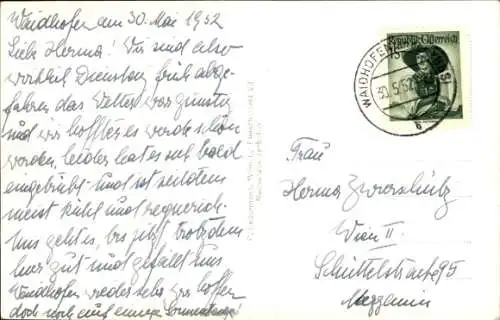 Waidhofen am 30. Mai 1952
Liebe Herma! Wir sind also
wirklich Dienstag früh abge-
fahren das Wetter war günstig
und wir hofften es werde schön
werden, leider hat es sich bald
eingetrübt und ist seitdem
meist kühl und regnerisch.
Uns geht es, bis jetzt trotzdem
hier gut und gefällt uns
Waidhofen wieder sehr wir hoffen
doch noch auf einige Sonnentage!
Republik Österreich
WAIDHOFEN
30.5.52
6
Frau
Herma
Wien II.
Schüttelstraße 95
Mezzanin